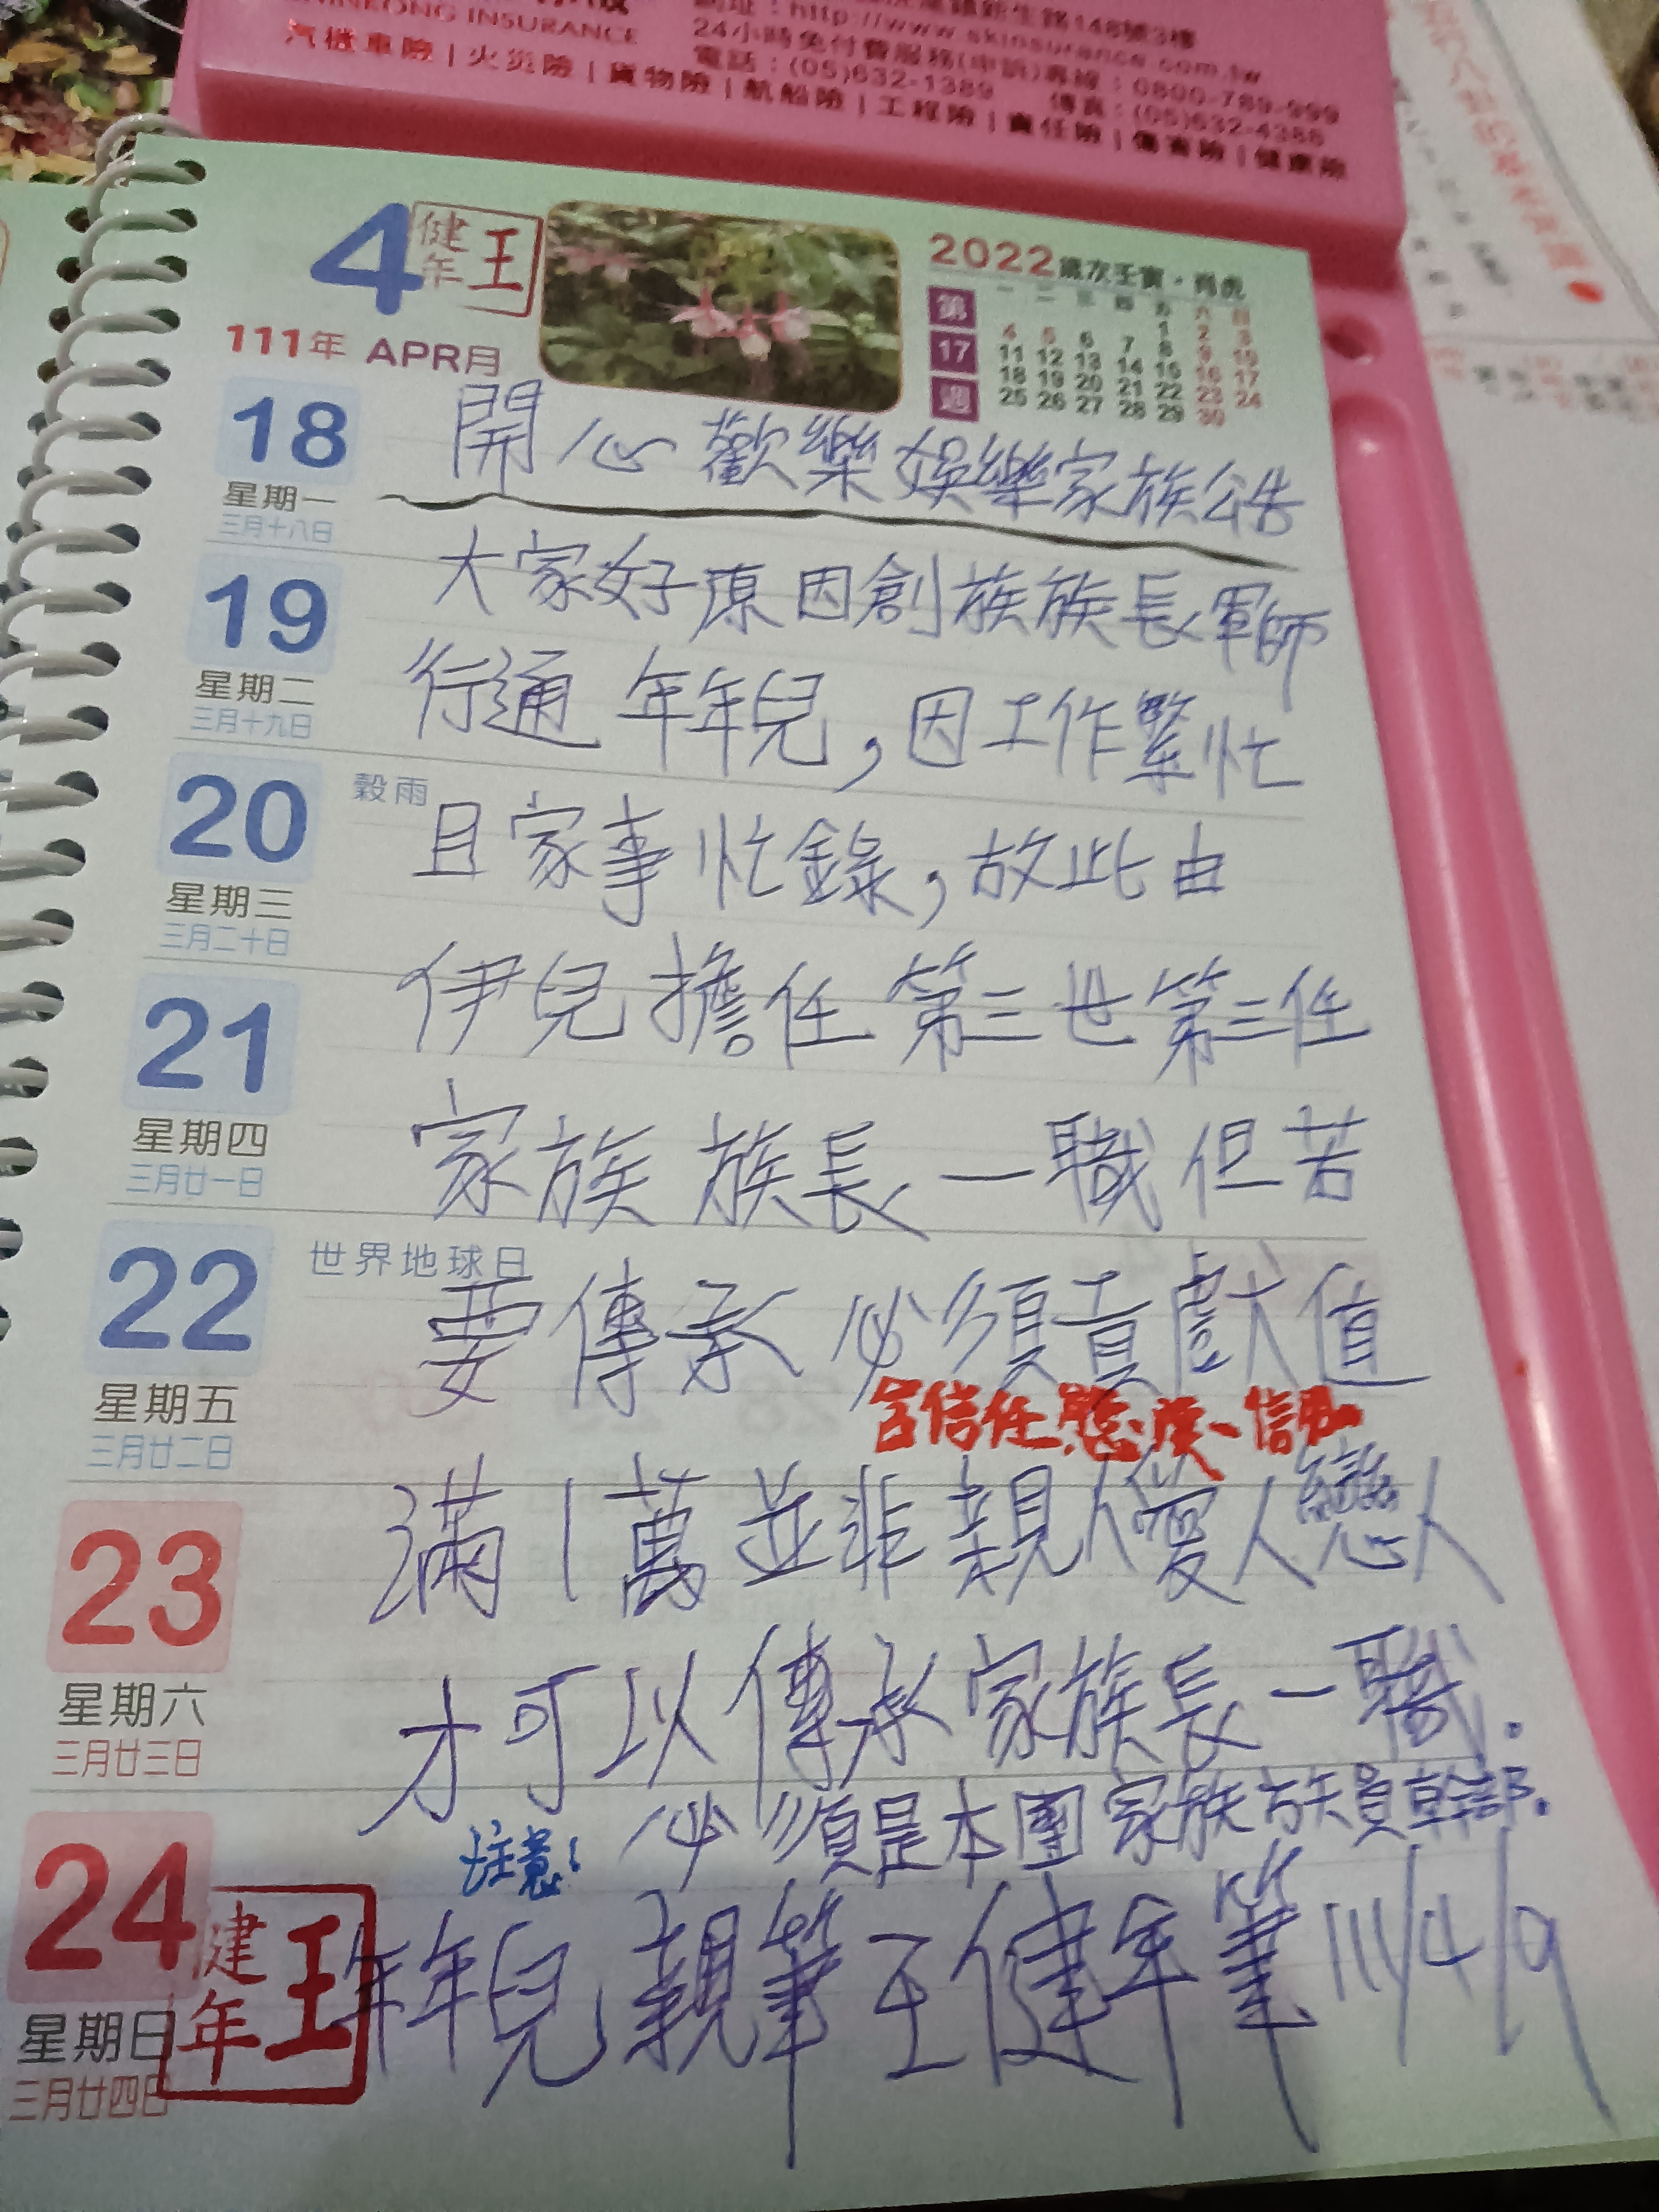 SHINKONG INSURANCE
新生路148號3樓
網址：http://www.skinsurance.com.tw
24小時免付費服務(申訴)專線：0800-789-999
電話：(05)632-1389 傳真：(05)632-4388
汽機車險|火災險|貨物險|航船險|工程險|責任險|傷害險|健康險
4
健年王
111年 APR月
2022歲次壬寅·肖虎
第17週
一 二 三 四 五 六 日
1 2 3
4 5 6 7 8 9 10
11 12 13 14 15 16 17
18 19 20 21 22 23 24
25 26 27 28 29 30
18
星期一
三月十八日
開心歡樂娛樂家族公告
19
星期二
三月十九日
大家好原因創族族長軍師
行通 年年兒,因工作繁忙
20
穀雨
星期三
三月二十日
且家事忙錄,故此由
21
星期四
三月廿一日
伊兒擔任第三世第三任
家族族長一職但若
22
世界地球日
星期五
三月廿二日
要傳承必須貢獻值
信任態度
23
星期六
三月廿三日
滿1萬並非親人愛人戀人
才可以傳承家族長一職.
注意! 必須是本團家族族員幹部.
24
星期日
三月廿四日
健年王
年年兒親筆王健年筆111/4/9